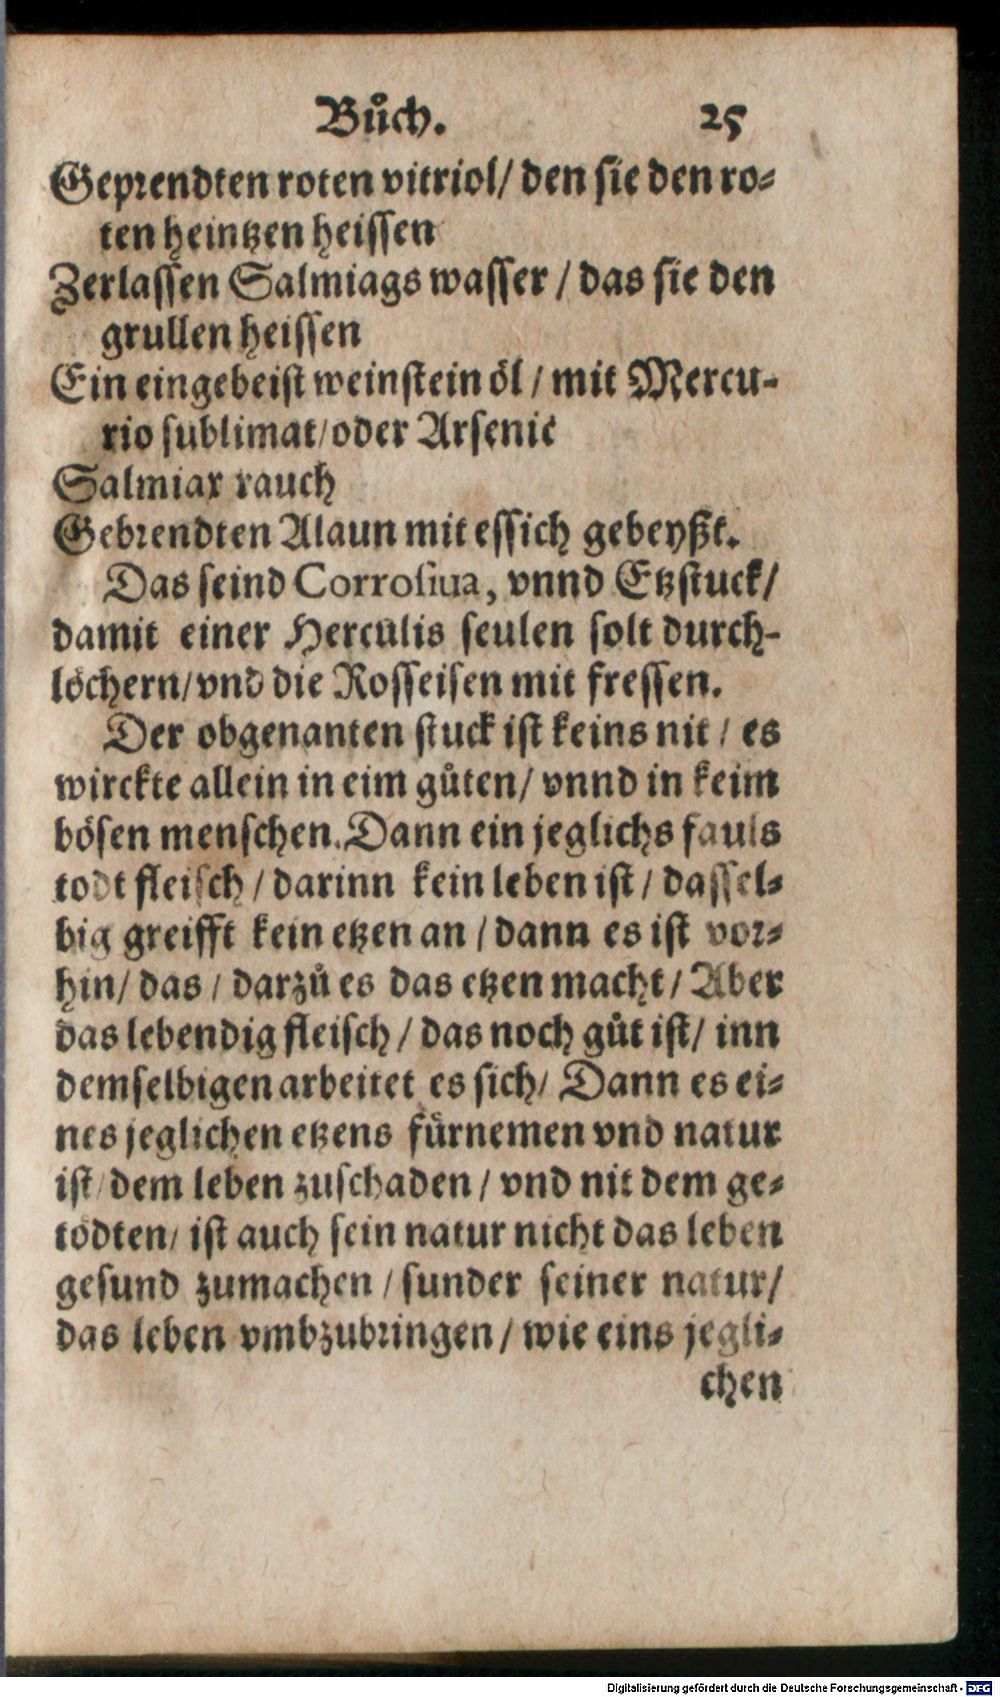 Bůch. 25
Geprendten roten vitriol/ den sie den ro⸗
ten heintzen heissen
Zerlassen Salmiags wasser / das sie den
grullen heissen
Ein eingebeist weinstein öl / mit Mercu-
rio sublimat/oder Arsenic
Salmiax rauch
Gebrendten Alaun mit essich gebeyßt.
Das seind Corrosiua, vnnd Etzstuck/
damit einer Herculis seulen solt durch-
löchern/vnd die Rosseisen mit fressen.
Der obgenanten stuck ist keins nit / es
wirckte allein in eim gůten/ vnnd in keim
bösen menschen. Dann ein jeglichs fauls
todt fleisch / darinn kein leben ist / dassel⸗
big greifft kein etzen an / dann es ist vor⸗
hin/ das / darzů es das etzen macht / Aber
das lebendig fleisch / das noch gůt ist/ inn
demselbigen arbeitet es sich/ Dann es ei⸗
nes jeglichen etzens fürnemen vnd natur
ist/ dem leben zuschaden / vnd nit dem ge⸗
tödten/ ist auch sein natur nicht das leben
gesund zumachen / sunder seiner natur/
das leben vmbzubringen / wie eins jegli⸗
chen
Digitalisierung gefördert durch die Deutsche Forschungsgemeinschaft - DFG